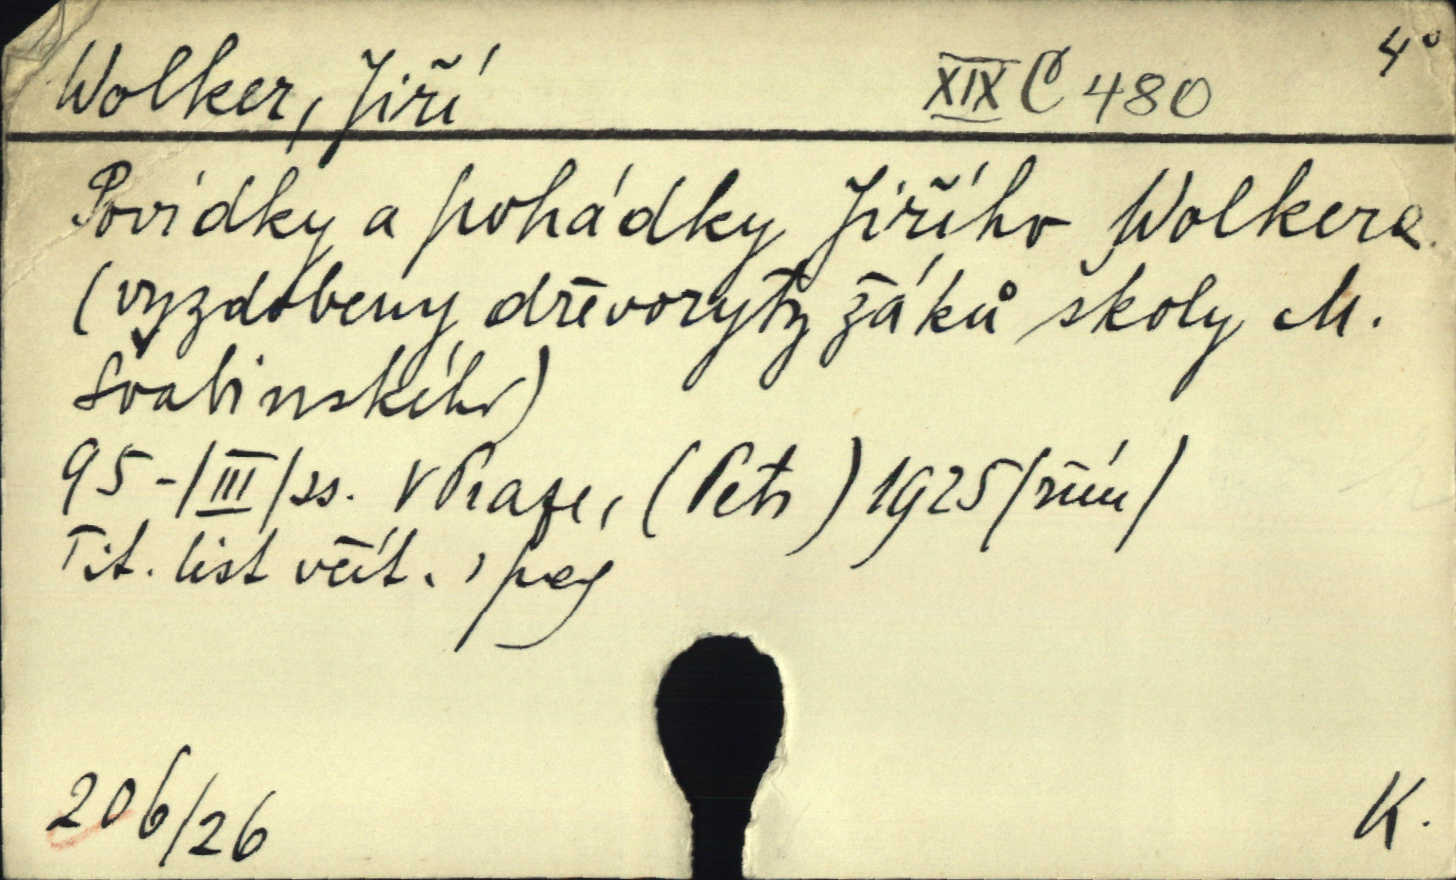 Wolker, Jiří XIX C 480 4°
Povídky a pohádky Jiřího Wolkera.
(vyzdobeny dřevoryty žáků školy M.
Švabinského)
95-/III/ss. V Praze, (Petr) 1925 (říjn)
Tit. list včít. pag
206/26 K.